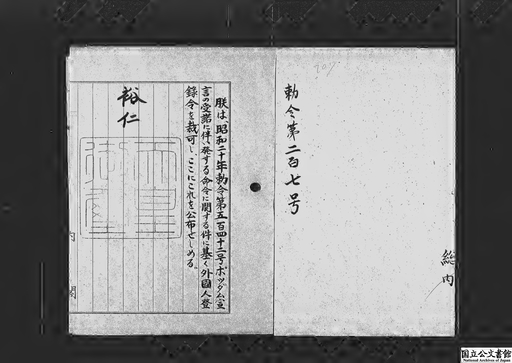 勅令第二百七号
総
内
朕は、昭和二十年勅令第五百四十二号ポツダム宣
言の受諾に伴い発する命令に関する件に基く外國人登
録令を裁可し、ここにこれを公布せしめる。
裕仁
天皇
御璽
内閣
国立公文書館
National Archives of Japan